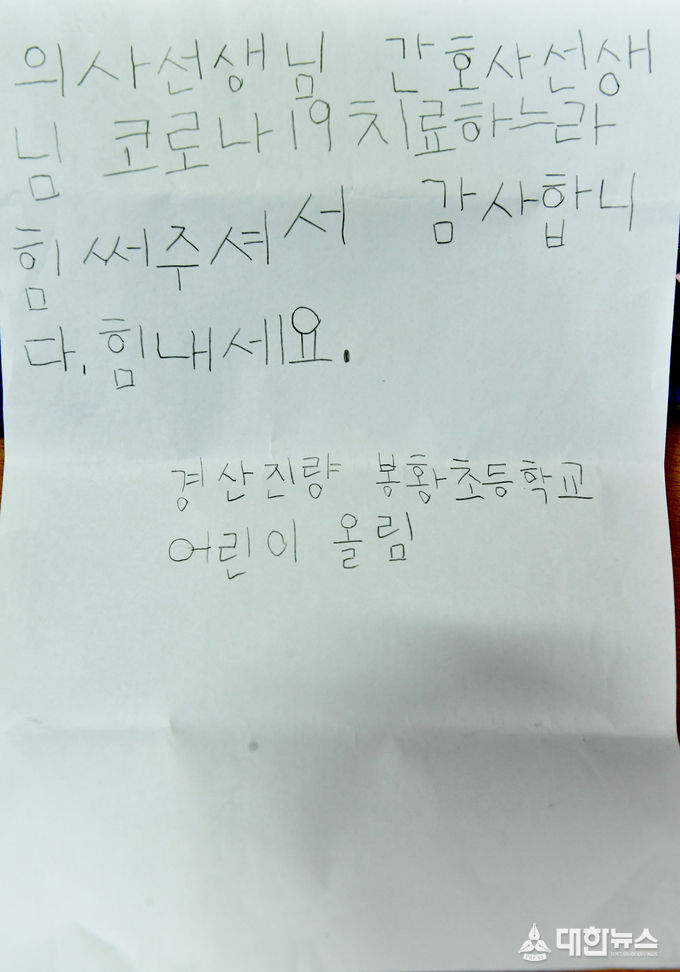 의사선생님 간호사선생
님 코로나19치료하느라
힘써주셔서 감사합니
다. 힘내세요.
경산진량 봉황초등학교
어린이 올림
대한뉴스